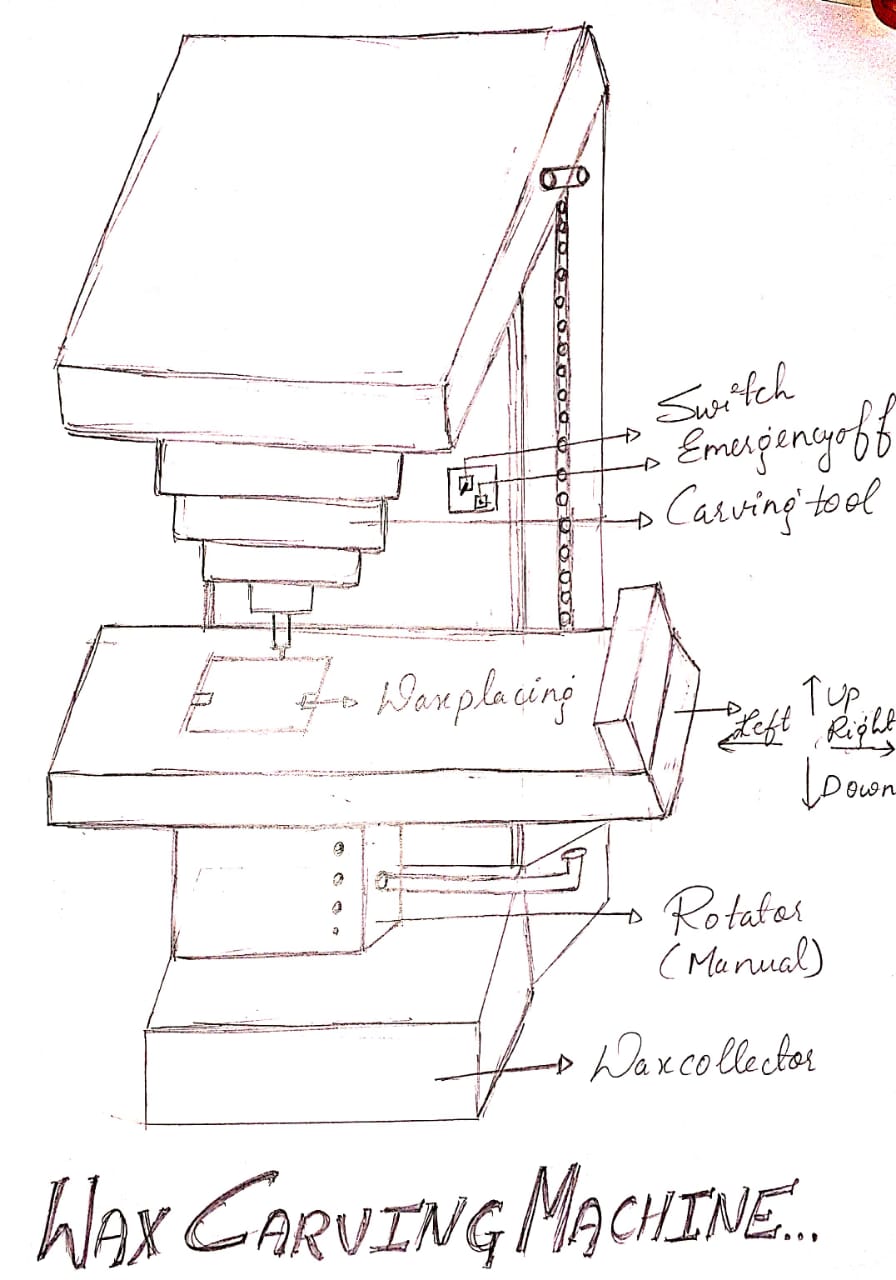 Switch
Emergency off
Carving tool
Wax placing
Up
Left
Right
Down
Rotator
(Manual)
Wax collector
WAX CARVING MACHINE...